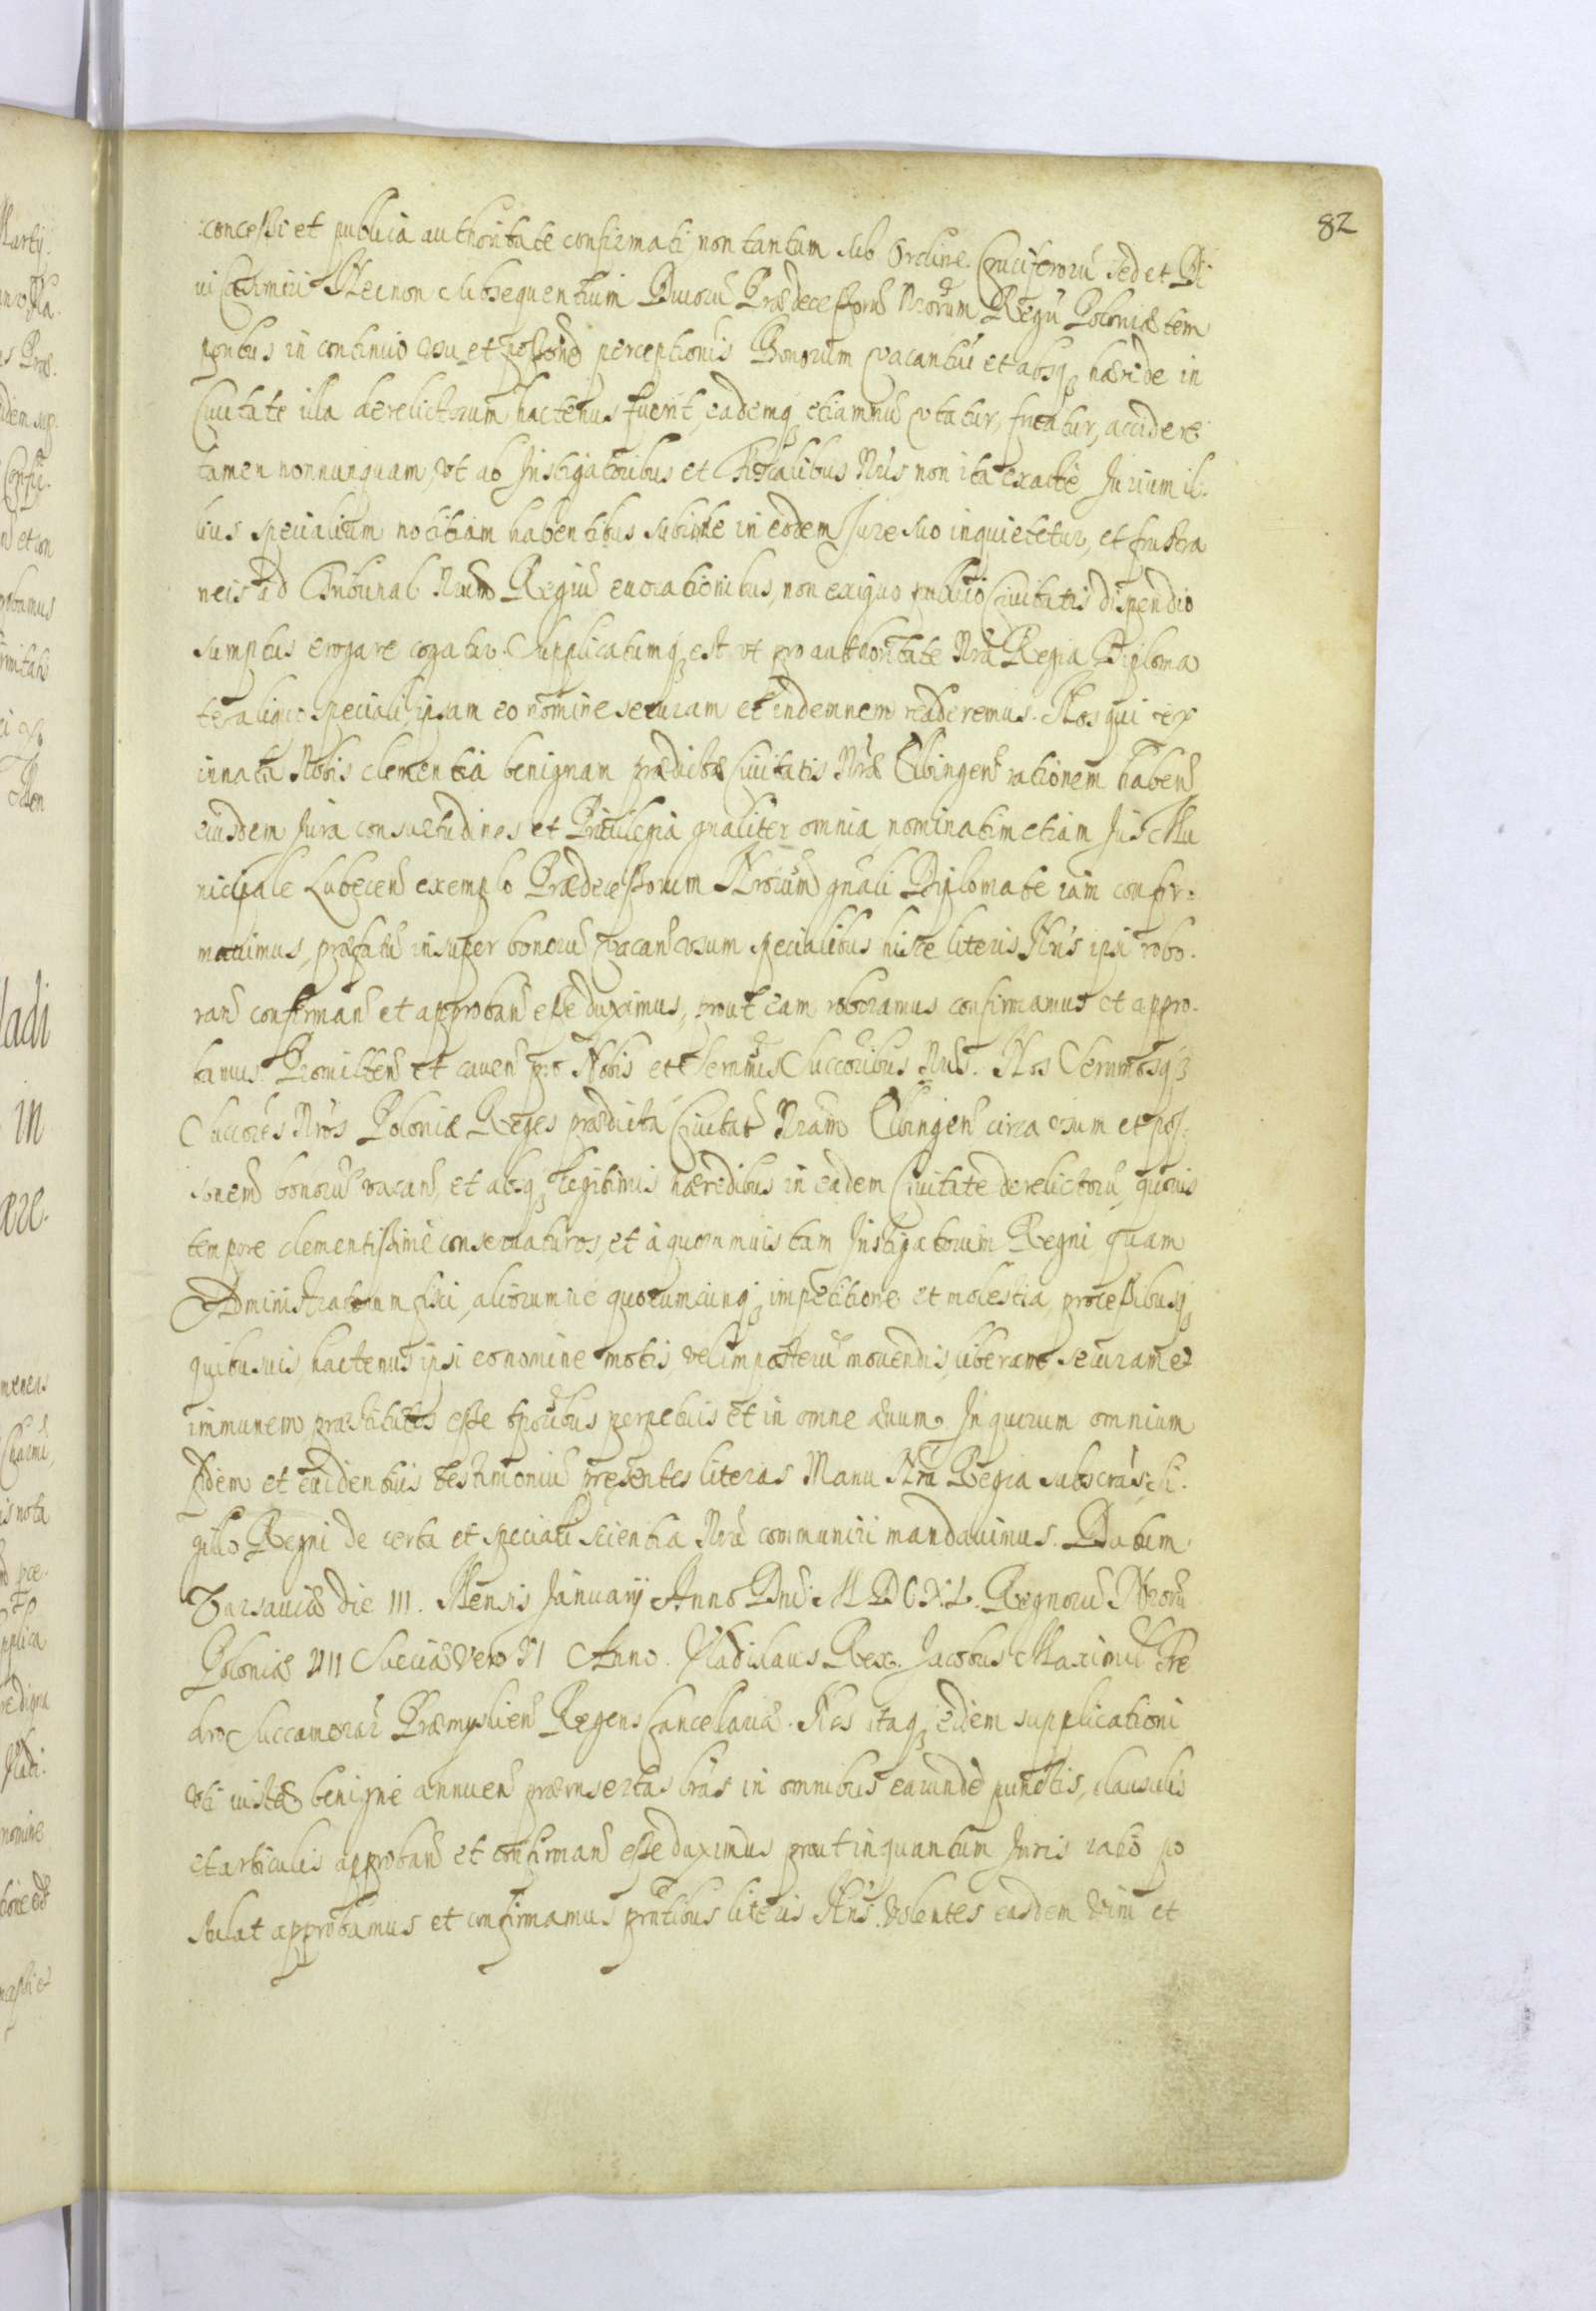 82
concessi et publica authoritate confirmati non tantum sub Ordine Cruciferorū sed et Di
ui Casimiri Necnon subsequentium Diuorū Prædecessorū Nrōrum Regū Poloniæ tem
poribus in continuo vsu et possōne perceptionis Bonorum vacantiū et absq hærede in
Ciuitate illa derelictorum hactenus fuerit, eademq etiamnū vtatur, fruatur, accidere
tamen nonnunquam, vt ab Instigatoribus et Fiscalibus Nrīs, non ita exacte Jurium il
lius specialium notitiam habentibus subinde in eodem Jure suo inquietetur, et frustra
neis ad Tribunal Nrūm Regiū euocationibus, non exiguo publico Ciuitatis dispendio
sumptus erogare cogatur. Supplicatumq est vt pro authoritate Nrā Regia Diploma
te aliquo speciali, ipsam eo nomine securam et indemnem redderemus. Nos qui ex
innata Nobis clementia benignam prædictæ Ciuitatis Nræ Elbingen rationem haben
eiusdem Jura consuetudines et Priuilegia gnāliter omnia, nominatim etiam Jus Mu
nicipale Lubecen exemplo Prædecessorum Nrōrum gnāli Diplomate iam confir
mauimus, præfatū insuper bonorū vacan vsum specialibus hisce literis Nrīs ipsi robo
ran confirman et approban esse duximus, prout eam roboramus confirmamus et appro
bamus. Promitten et cauen pro Nobis et Serenmis Succoribus Nrīs. Nos Serenmosq
Succores Nrōs Poloniæ Reges prædictā Ciuitatē Nrām Elbingen circa vsum et pos
sonem bonorū vacan, et absq legitimis hæredibus in eadem Ciuitate derelictorū, quouis
tempore clementissime conseruaturos, et a quorumuis tam Instigatorum Regni quam
Administratorum fisci, aliorumue quorumcunq impetitione et molestia, processibusq
quibusuis hactenus ipsi eo nomine motis, vel imposterū mouendis, liberam, securam et
immunem præstituros esse tporibus perpetuis et in omne æuum. In quorum omnium
fidem et euidentius testimoniū præsentes literas Manu Nrā Regia subscrās, Si
gillo Regni de certa et speciali scientia Nrā communiri mandauimus. Datum
Varsauiæ die III. Mensis Januarij Anno Dni M DC XL. Regnorū Nrōrū
Poloniæ VII Sueciæ vero VI Anno. Vladislaus Rex. Jacobus Maximil Fre
dro Succamerar Præmyslien Regens Cancellariæ. Nos itaq eidem supplicationi
vti iustæ benigne annuen præinsertas lrās in omnibus earundē punctis, clausulis
et articulis approban et confirman esse duximus prout in quantum Juris ratio po
stulat approbamus et confirmamus prntibus literis Nrīs. Volentes easdem vim et